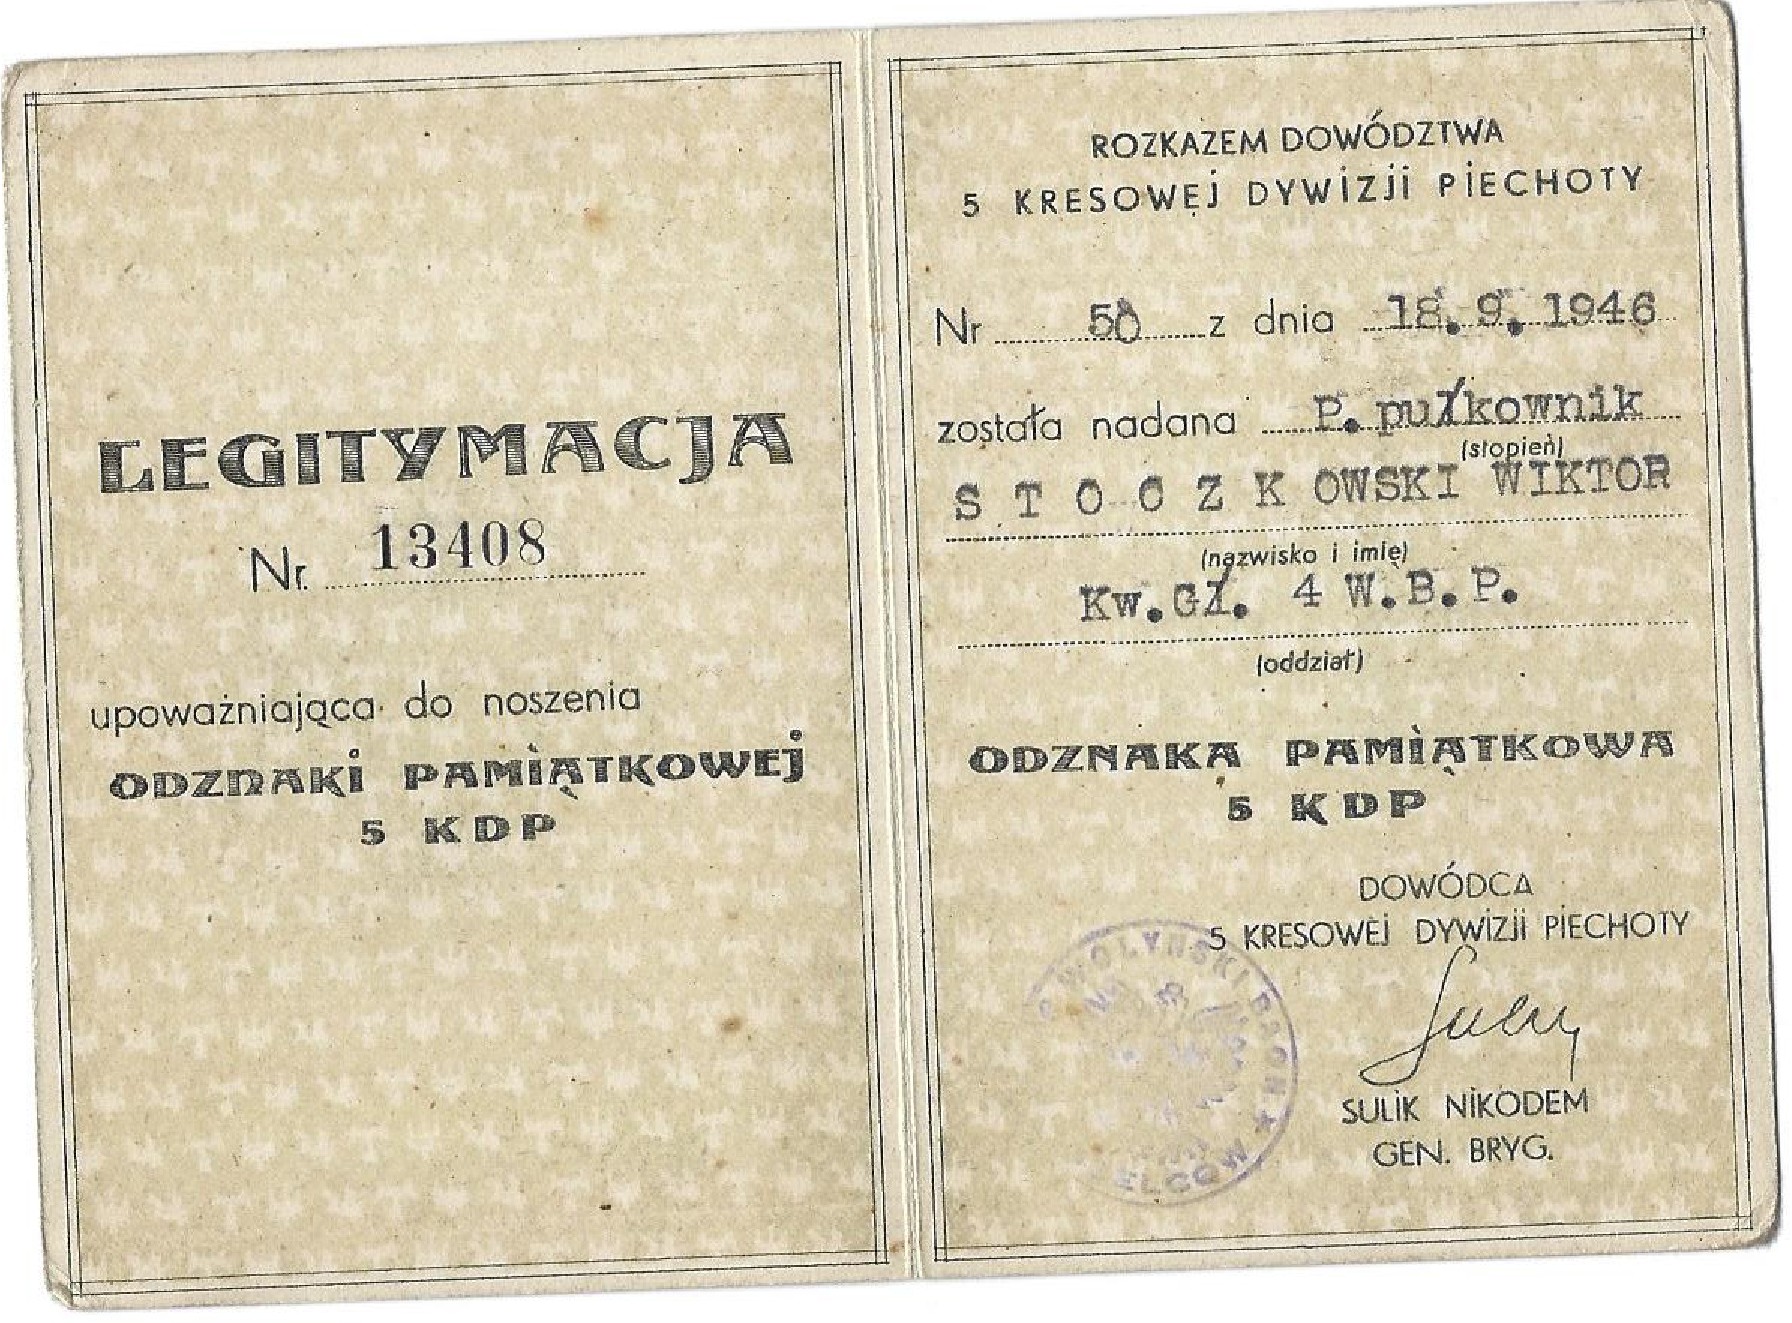 LEGITYMACJA
Nr. 13408
upoważniająca do noszenia
ODZNAKI PAMIĄTKOWEJ
5 KDP
ROZKAZEM DOWÓDZTWA
5 KRESOWEJ DYWIZJI PIECHOTY
Nr 50 z dnia 18.9.1946
została nadana P.pułkownik
(stopień)
STOCZKOWSKI WIKTOR
(nazwisko i imię)
Kw.Gł. 4 W.B.P.
(oddział)
ODZNAKA PAMIĄTKOWA
5 KDP
DOWÓDCA
5 KRESOWEJ DYWIZJI PIECHOTY
SULIK NIKODEM
GEN. BRYG.
WOŁYŃSKI BAON